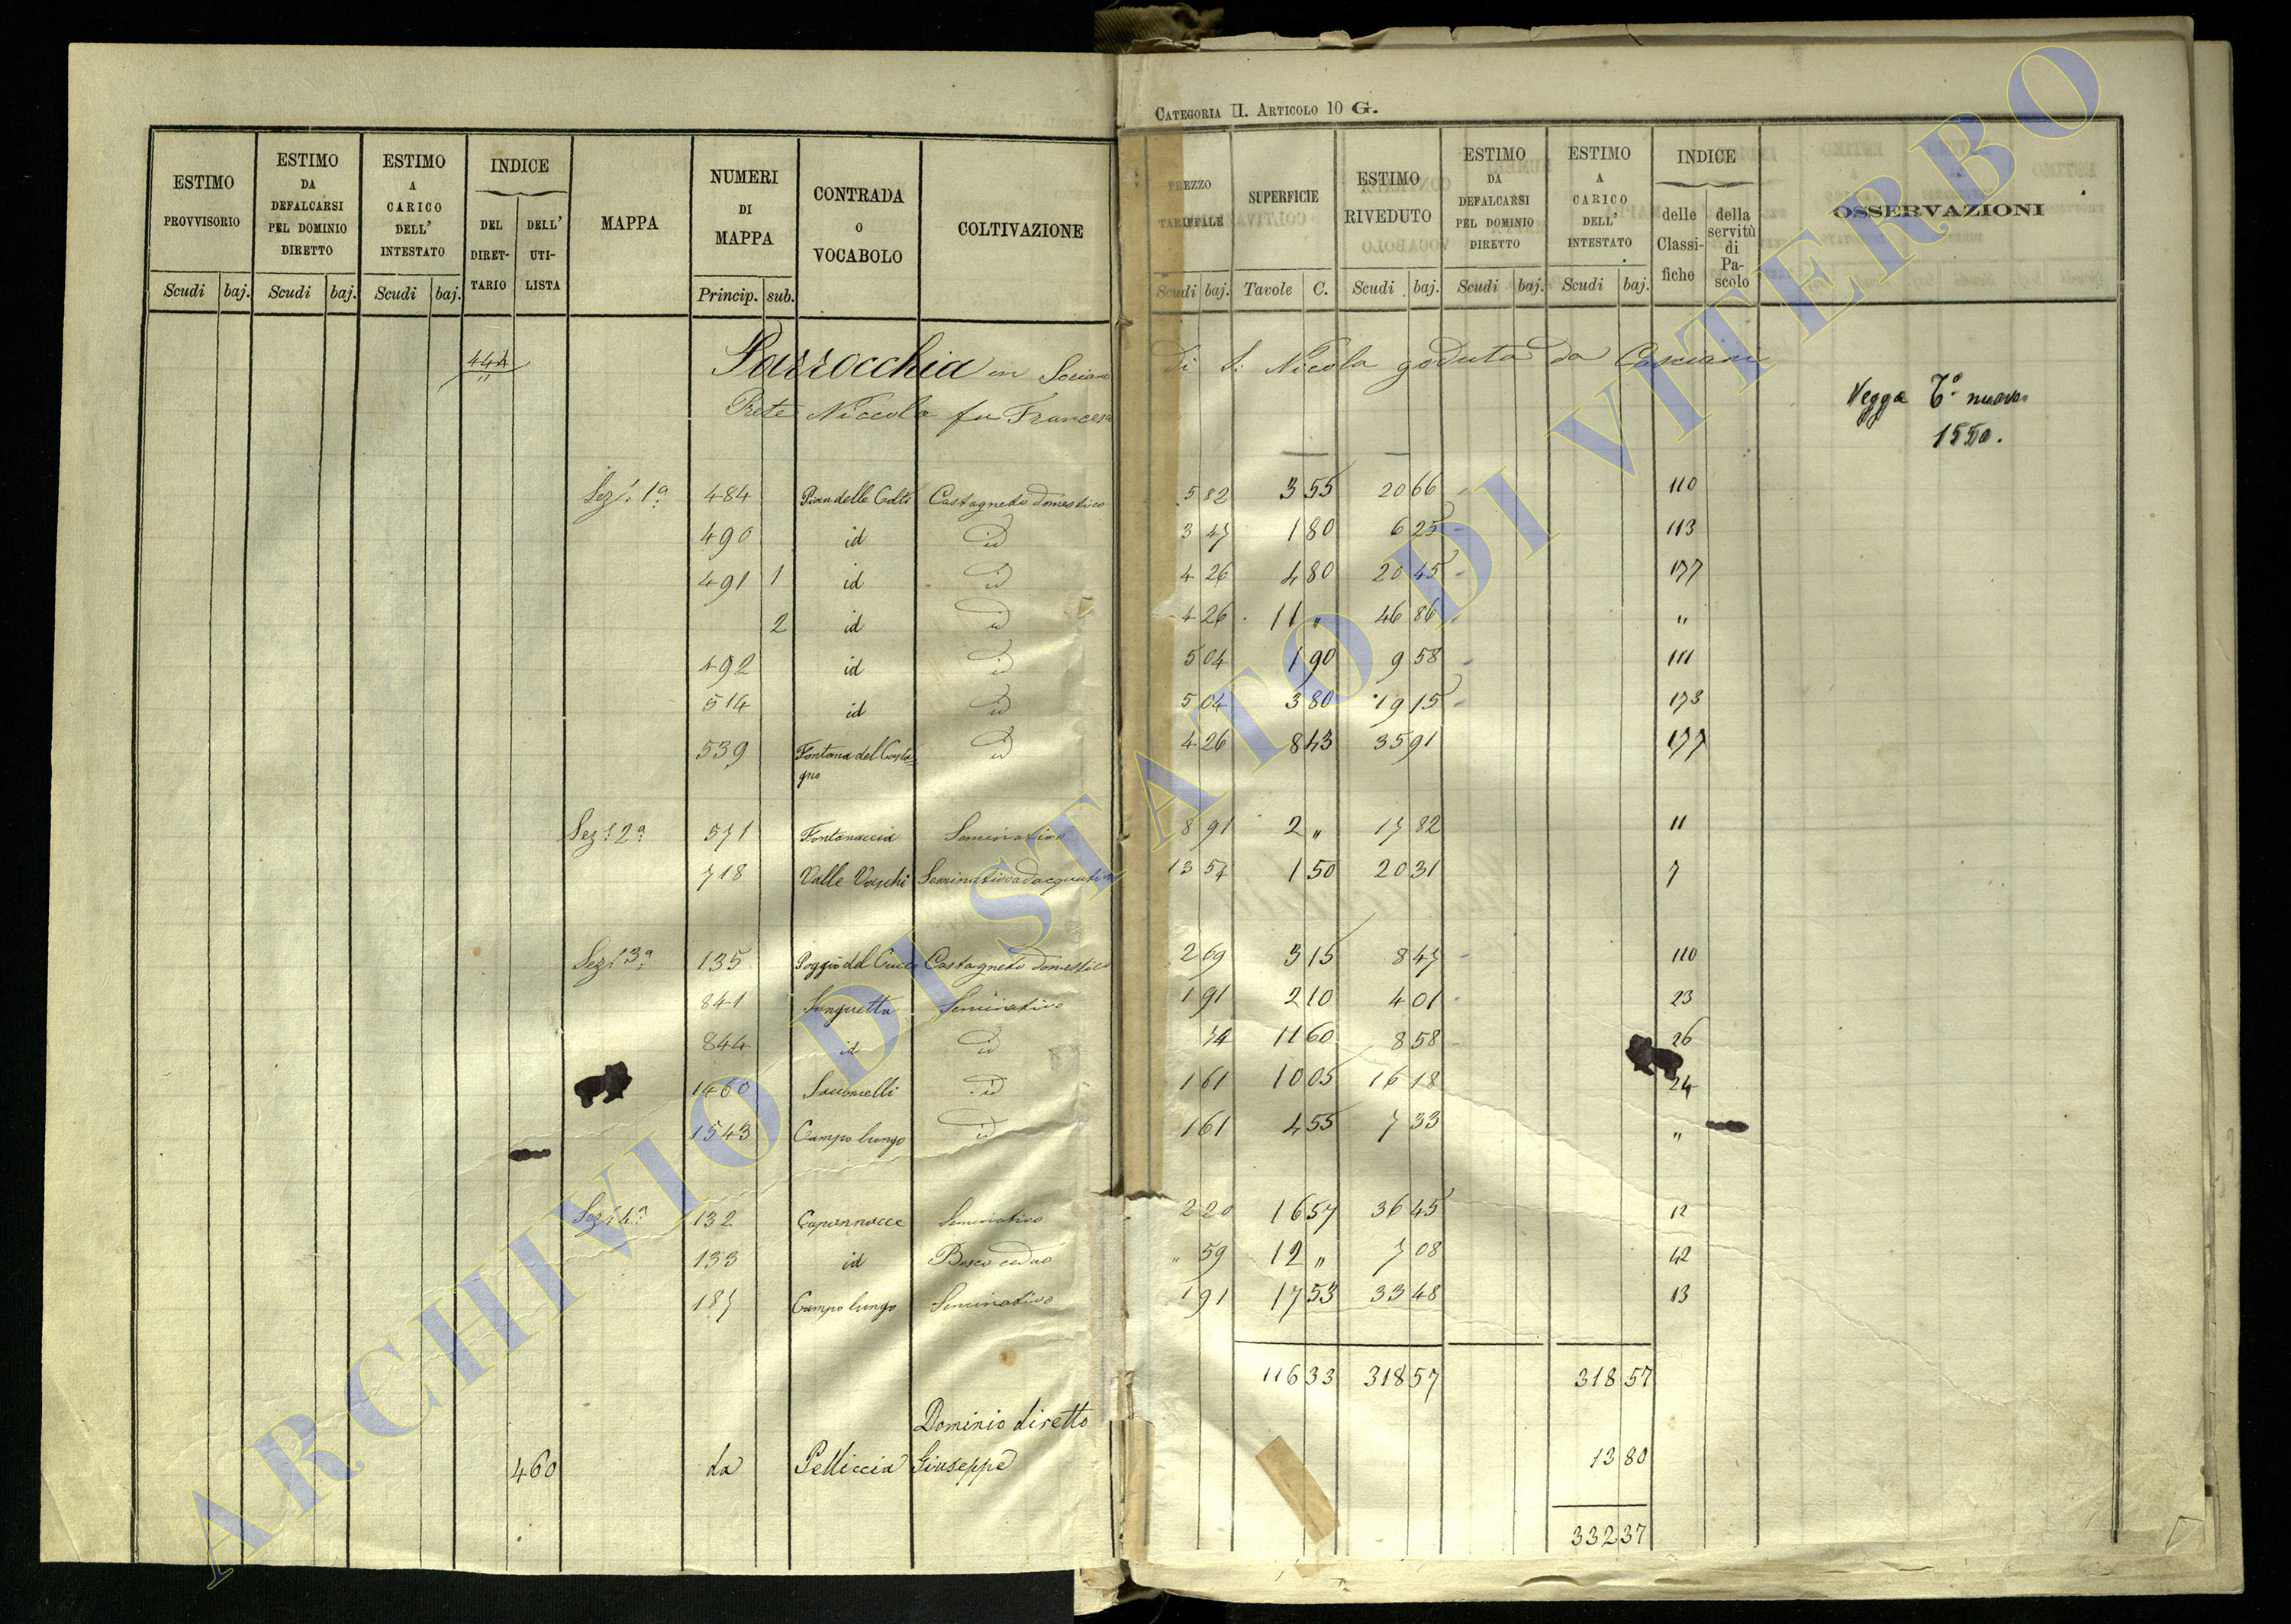 CATEGORIA II. ARTICOLO 10 G.
ESTIMO PROVVISORIO Scudi baj.
ESTIMO DA DEFALCARSI PEL DOMINIO DIRETTO Scudi baj.
ESTIMO A CARICO DELL' INTESTATO Scudi baj.
INDICE DEL DIRET-TARIO DELL' UTI-LISTA
MAPPA
NUMERI DI MAPPA Princip. sub.
CONTRADA O VOCABOLO
COLTIVAZIONE
PREZZO TARIFFALE Scudi baj.
SUPERFICIE Tavole C.
ESTIMO RIVEDUTO Scudi baj.
ESTIMO DA DEFALCARSI PEL DOMINIO DIRETTO Scudi baj.
ESTIMO A CARICO DELL' INTESTATO Scudi baj.
INDICE delle Classi-fiche della servitù di Pa-scolo
OSSERVAZIONI
444 Parrocchia in Soriano di S. Nicola goduta da Casciani
Prete Niccola fu Francesco
Vegga T.° nuovo
1550.
Sez. 1ª 484 Pian delle Colti Castagneto domestico 5 82 3 55 20 66 110
490 id id 3 47 1 80 6 25 113
491 1 id id 4 26 4 80 20 45 177
2 id id 4 26 11 " 46 86 "
492 id id 5 04 1 90 9 58 111
514 id id 5 04 3 80 19 15 173
539 Fontana del Casta=gno id 4 26 8 43 35 91 177
Sez. 2ª 571 Fontanaccia Seminativo 8 91 2 " 17 82 11
718 Valle Vaschi Seminativo adacquativo 13 54 1 50 20 31 7
Sez. 3ª 135 Poggio del Cucco Castagneto domestico 2 69 3 15 8 47 110
841 Sanguetta Seminativo 1 91 2 10 4 01 23
844 id id 74 11 60 8 58 26
1460 Sacconelli id 1 61 10 05 16 18 24
1543 Campo lungo id 1 61 4 55 7 33 "
Sez. 4ª 132 Capannacce Seminativo 2 20 16 57 36 45 12
133 id Bosco ceduo " 59 12 " 7 08 42
187 Campo lungo Seminativo 1 91 17 53 33 48 13
116 33 318 57 318 57
Dominio diretto
460 da Pelliccia Giuseppe 13 80
332 37
ARCHIVIO DI STATO DI VITERBO